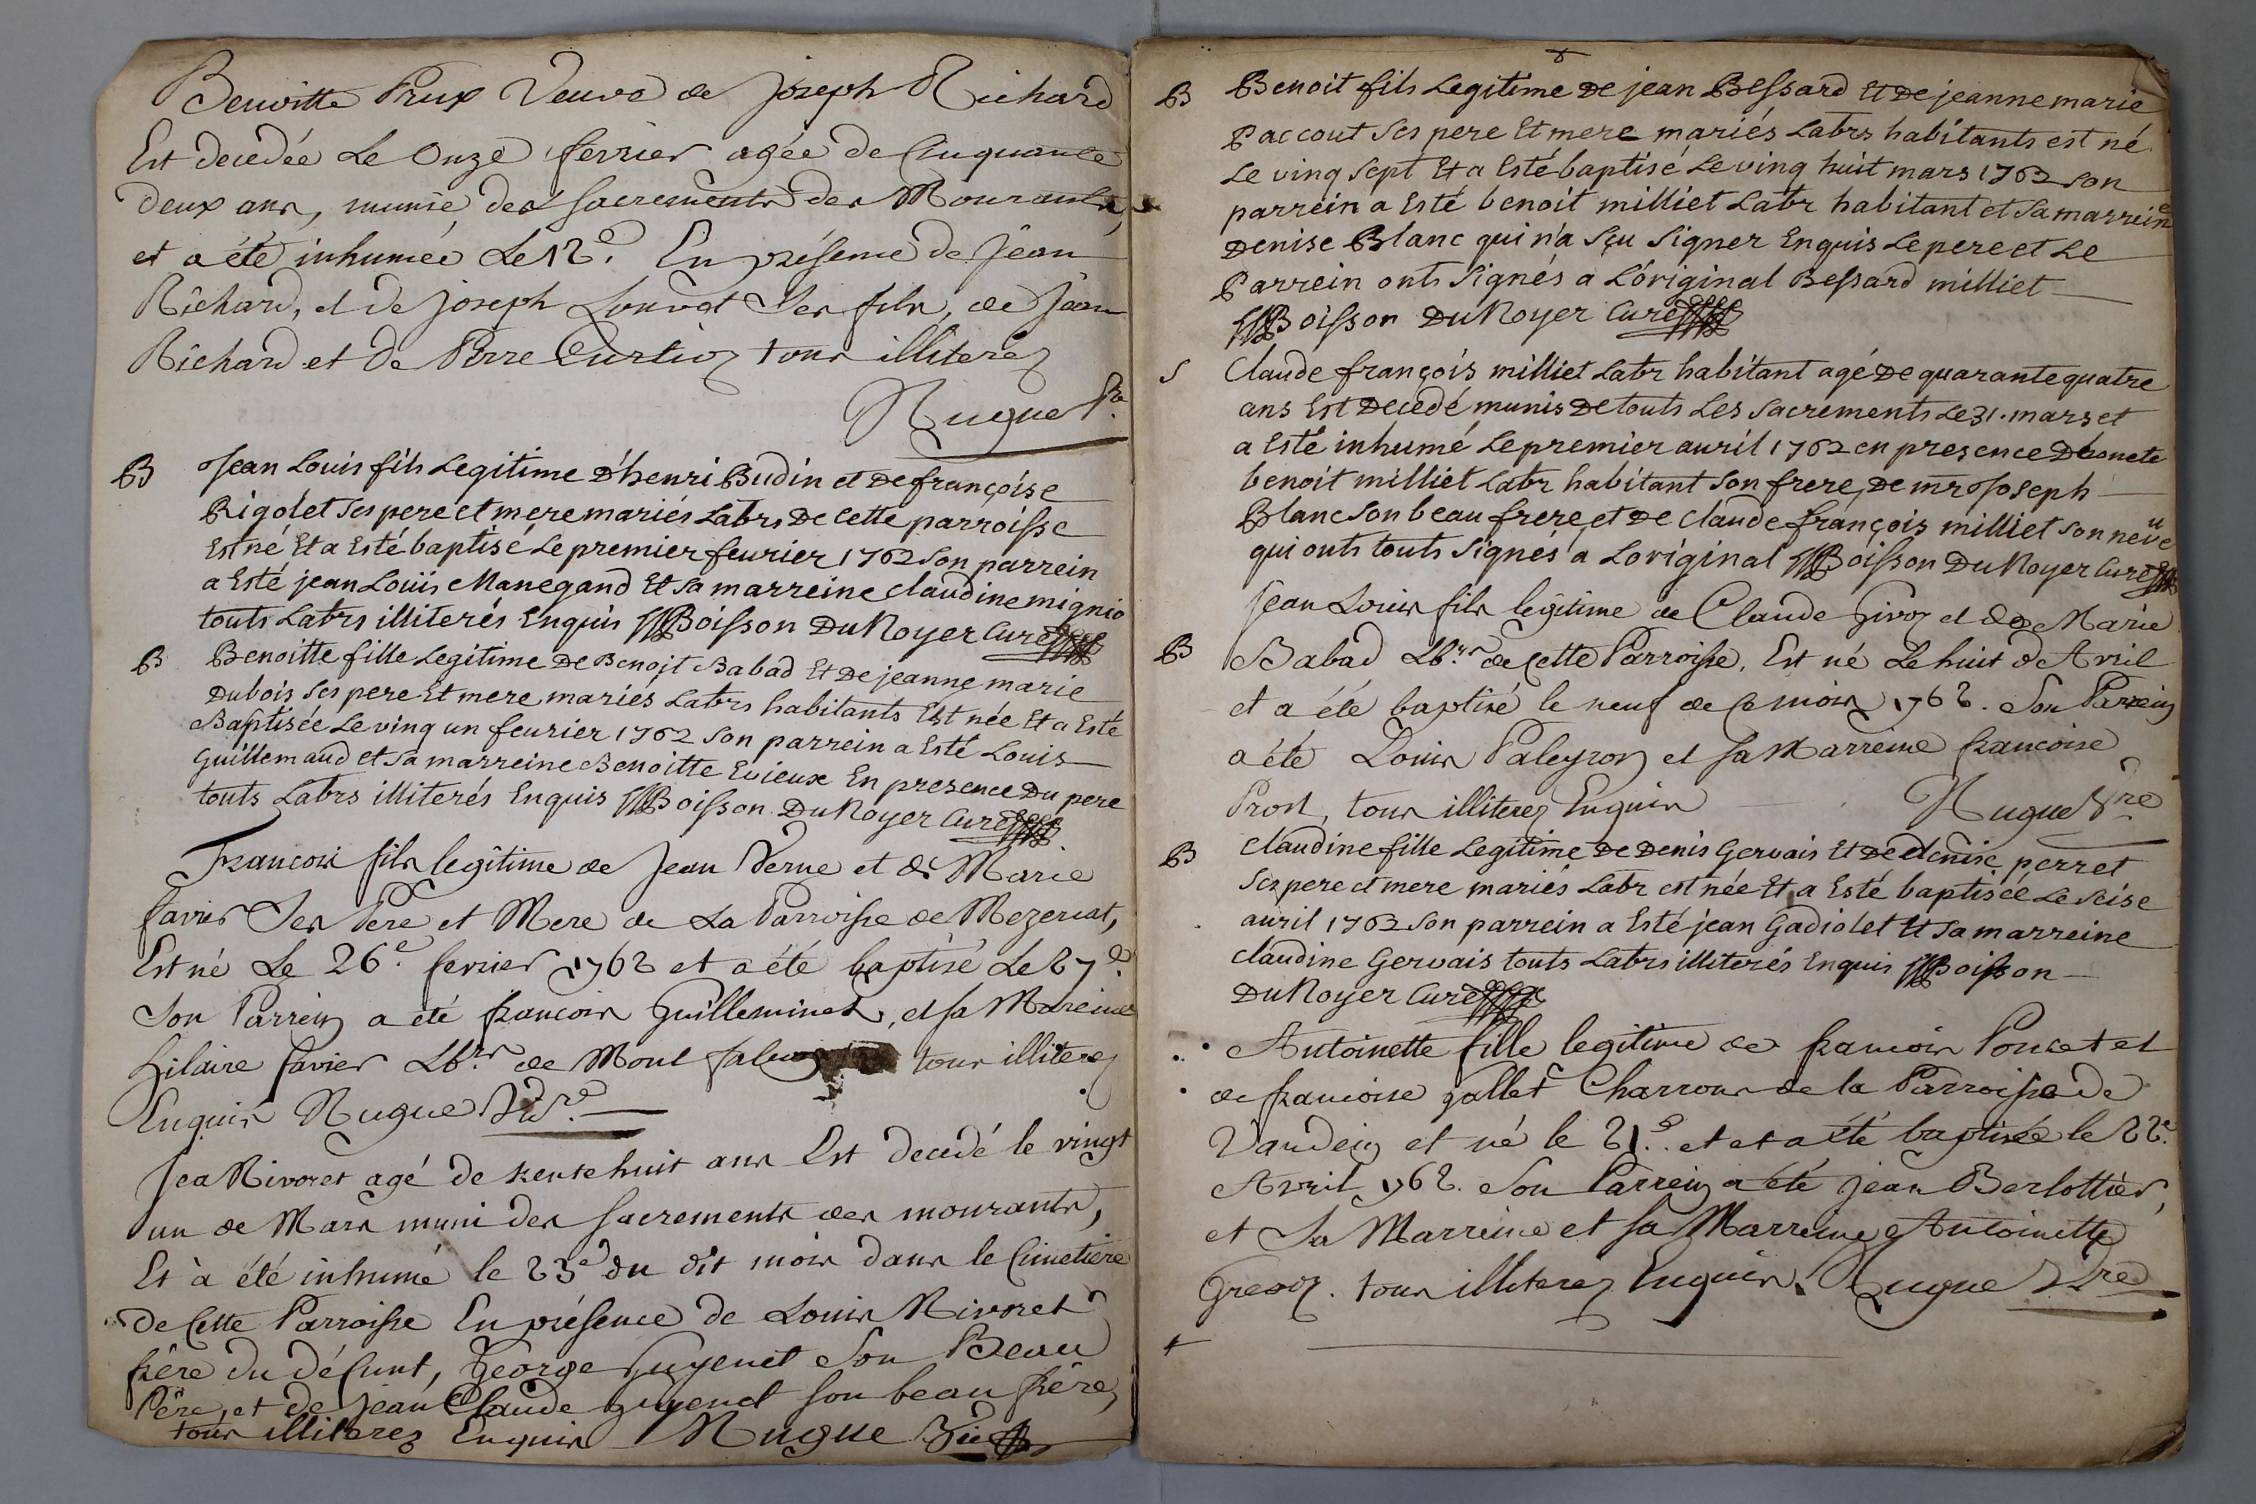 Benoitte Prux Veuve de Joseph Richard
Est decedée Le Onze fevrier agée de Cinquante
deux ans, munie des sacrements des Mourants,
et a été inhumée Le 12e. En présence de Jean
Richard, et de Joseph Louvet Ses fils, de Jean
Richard et de Pierre Curtioz tous illiterez
Nugue
B Jean Louis fils Legitime D'henri Budin et De françoise
Rigolet Ses pere et mere mariés Labrs De Cette parroisse
Est né Et a Esté baptisé Le premier feurier 1762 Son parrein
a Esté jean Louis Manegand Et Sa marreine Claudine mignio
touts Labrs illiterés Enquis Boisson DuNoyer Curé
B Benoitte fille Legitime De Benoit Babad Et De jeanne marie
Dubois Ses pere Et mere mariés Labrs habitants Est née Et a Esté
Baptisée Le ving un feurier 1762 Son parrein a Esté Louis
Guillemaud et Sa marreine Benoitte Evieux En presence Du pere
touts Labrs illiterés Enquis Boisson DuNoyer Curé
Francois fils legitime de Jean Verne et de Marie
favier Ses Pere et Mere de La Parroisse de Mezeriat,
Est né Le 26e. fevrier 1762 et a été baptisé Le 27e.
Son Parrein a été francois Guilleminet, et sa Mareine
hilaire favier Lbrs de Mont falcon tous illiterez
Enquis Nugue Vicre
Jea Nivoret agé de trente huit ans Est decedé le vingt
un de Mars muni des sacrements des mourants,
Et à été inhumé le 23e du dit mois dans le Cimetiere
de Cette Parroisse En présence de Louis Nivoret
frère du défunt, George Guyenet Son Beau
Père, et de Jean Claude Guyenet son beau frère,
tous illiterez Enquis Nugue Vic
B Benoit fils Legitime De jean Bessard Et De jeanne marie
Paccout Ses pere Et mere mariés Labrs habitants est né
Le ving Sept Et a Esté baptisé Le ving huit mars 1762 Son
parrein a Esté benoit milliet Labr habitant et Sa marreine
Denise Blanc qui n'a Sçu Signer Enquis Le pere et Le
Parrein onts Signés a L'original Bessard milliet
Boisson DuNoyer Curé
S Claude françois milliet Labr habitant agé De quarante quatre
ans Est Decedé munis De touts Les Sacrements Le 31. mars et
a Esté inhumé Le premier auril 1762 en presence D'honete
benoit milliet Labr habitant Son frere, De mr Joseph
Blanc Son beau frere, et De Claude françois milliet Son neveu
qui onts touts Signés a Loriginal Boisson DuNoyer Curé
Jean Louis fils legitime de Claude Givoz et de Marie
B Babad Lbrs de Cette Parroisse, Est né Le huit d'Avril
et a été baptisé le neuf de Ce mois 1762. Son Parrein
a été Louis Paleyron et sa Marreine francoise
Prost, tous illiterez Enquis Nugue Vre
B Claudine fille Legitime De Denis Gervais Et De Denise perret
Ses pere et mere mariés Labr est née Et a Esté baptisée Le Seise
auril 1762 Son parrein a Esté jean Gadiolet Et Sa marreine
Claudine Gervais touts Labrs illiterés Enquis Boisson
DuNoyer Curé
Antoinette fille legitime de francois Poncet et
de francoise gollet Charrons de la Parroisse de
Vandein et né le 21e. et et a été baptisée le 22e.
Avril 1762. Son Parrein a été jean Berlottier,
et Sa Marreine et sa Marreine Antoinette
Greoz. tous illiterez Enquis. Nugue Vre